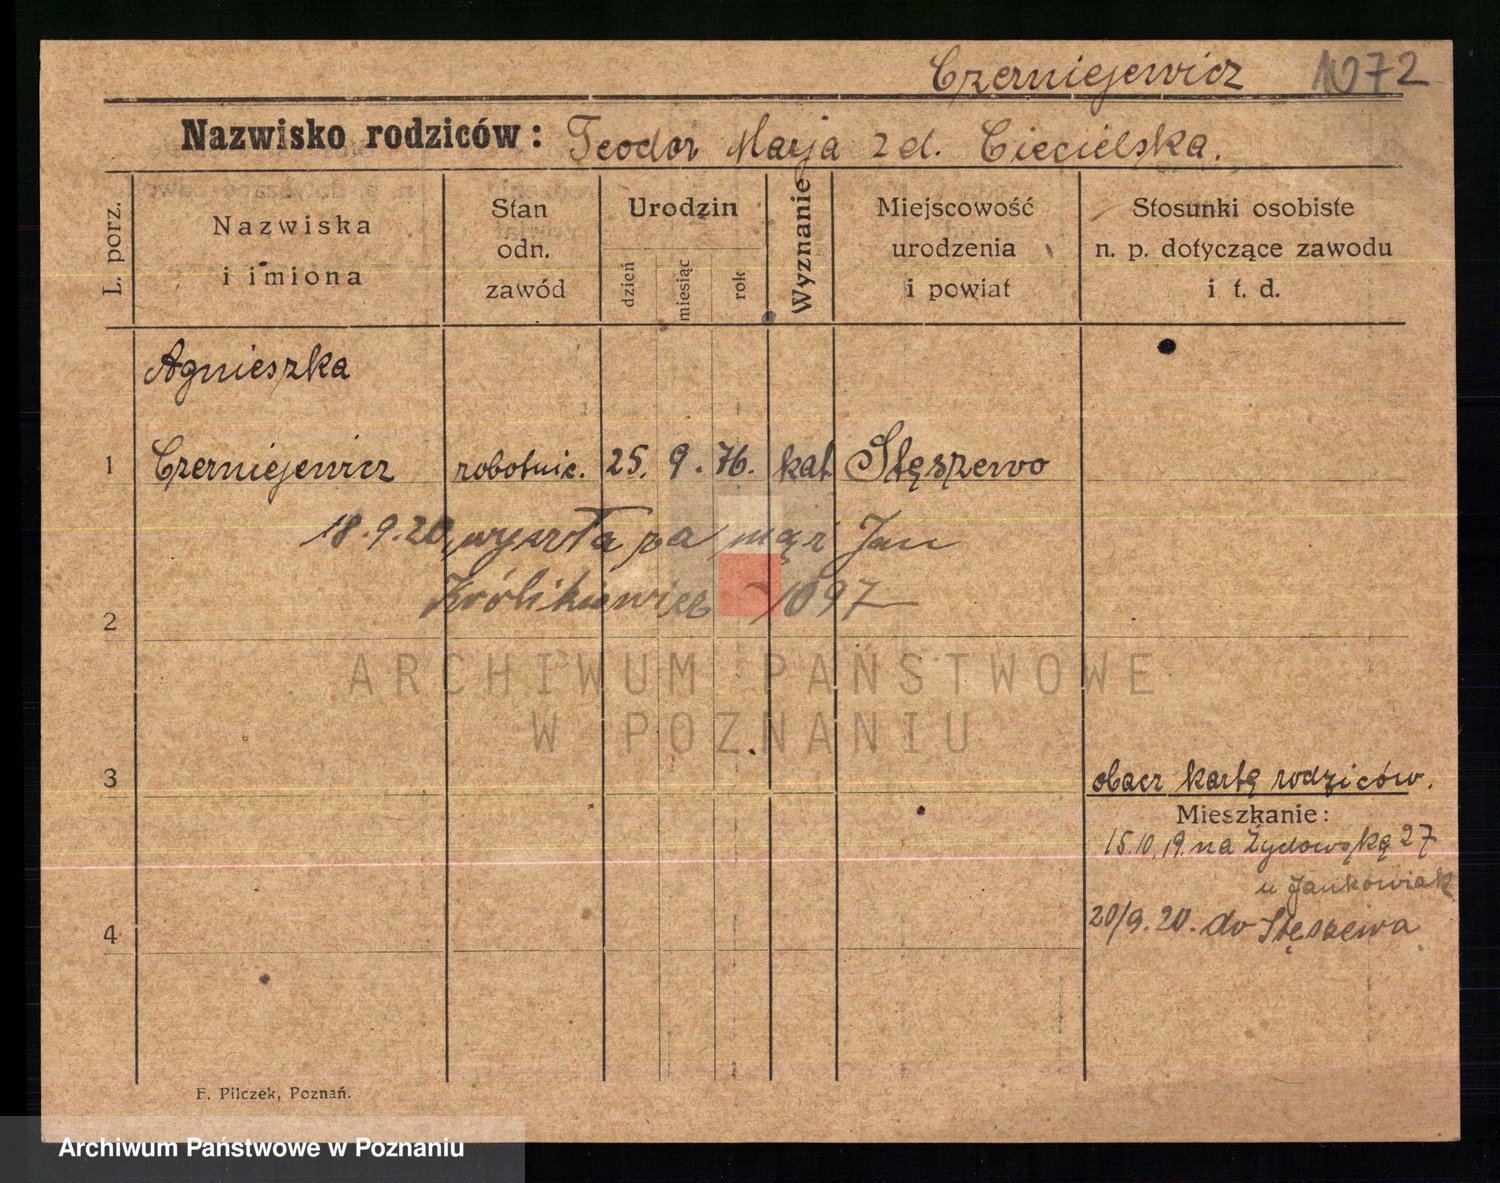 Czerniejewicz 1072
Nazwisko rodziców: Teodor Marja z d. Ciecielska.
L. porz.
Nazwiska
i imiona
Stan
odn.
zawód
Urodzin
dzień
miesiąc
rok
Wyznanie
Miejscowość
urodzenia
i powiat
Stosunki osobiste
n. p. dotyczące zawodu
i t. d.
Agnieszka
1 Czerniejewicz robotnic. 25. 9. 76. kat Stęszewo
18.9.20 wyszła za mąż Jan
Królikiewicz 1097
2
ARCHIWUM PAŃSTWOWE
W POZNANIU
3
obacz kartę rodziców.
Mieszkanie:
15.10.19. na Żydowską 27
u Jankowiak
4
20/9.20. do Stęszewa
F. Pilczek, Poznań.
Archiwum Państwowe w Poznaniu